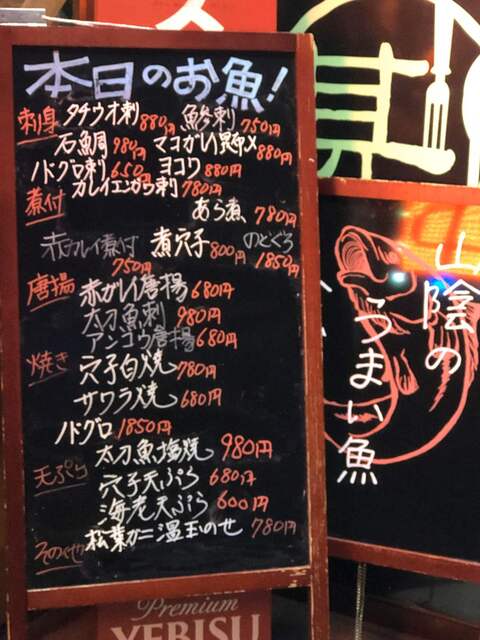 本日のお魚!
刺身 タチウオ刺 880円 鯵刺 750円
石鯛 980円 マコガレイ昆布〆 880円
ノドグロ刺 650円 ヨコワ 880円
カレイエンガワ刺 780円
煮付 あら煮 780円
赤カレイ煮付 750円 煮穴子 800円 のどぐろ 1850円
唐揚 赤ガレイ唐揚 680円
太刀魚刺 980円
アンコウ唐揚 680円
焼き 穴子白焼 780円
サワラ焼 680円
ノドグロ 1850円
太刀魚塩焼 980円
天ぷら 穴子天ぷら 680円
海老天ぷら 600円
その他 松葉ガニ温玉のせ 780円
山陰の
うまい魚
Premium
YEBISU